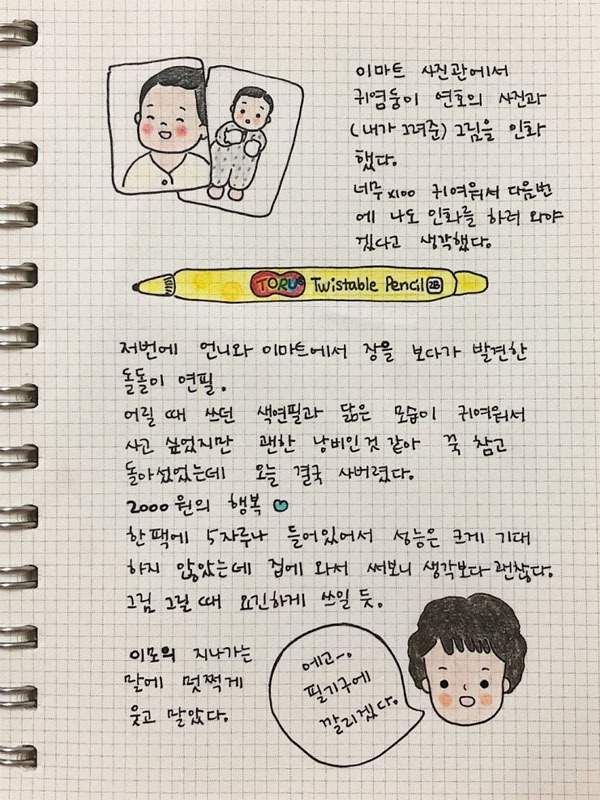 이마트 사진관에서
귀염둥이 연호의 사진과
(내가 그려준) 그림을 인화
했다.
너무 x100 귀여워서 다음번
에 나도 인화를 하러 와야
겠다고 생각했다.
TORU Twistable Pencil 2B
저번에 언니와 이마트에서 장을 보다가 발견한
돌돌이 연필.
어릴 때 쓰던 색연필과 닮은 모습이 귀여워서
사고 싶었지만 괜한 낭비인 것 같아 꾹 참고
돌아섰었는데 오늘 결국 사버렸다.
2000원의 행복
한 팩에 5자루나 들어있어서 성능은 크게 기대
하지 않았는데 집에 와서 써보니 생각보다 괜찮다.
그림 그릴 때 요긴하게 쓰일 듯.
이모의 지나가는
말에 멋쩍게
웃고 말았다.
에고~.
필기구에
깔리겠다.